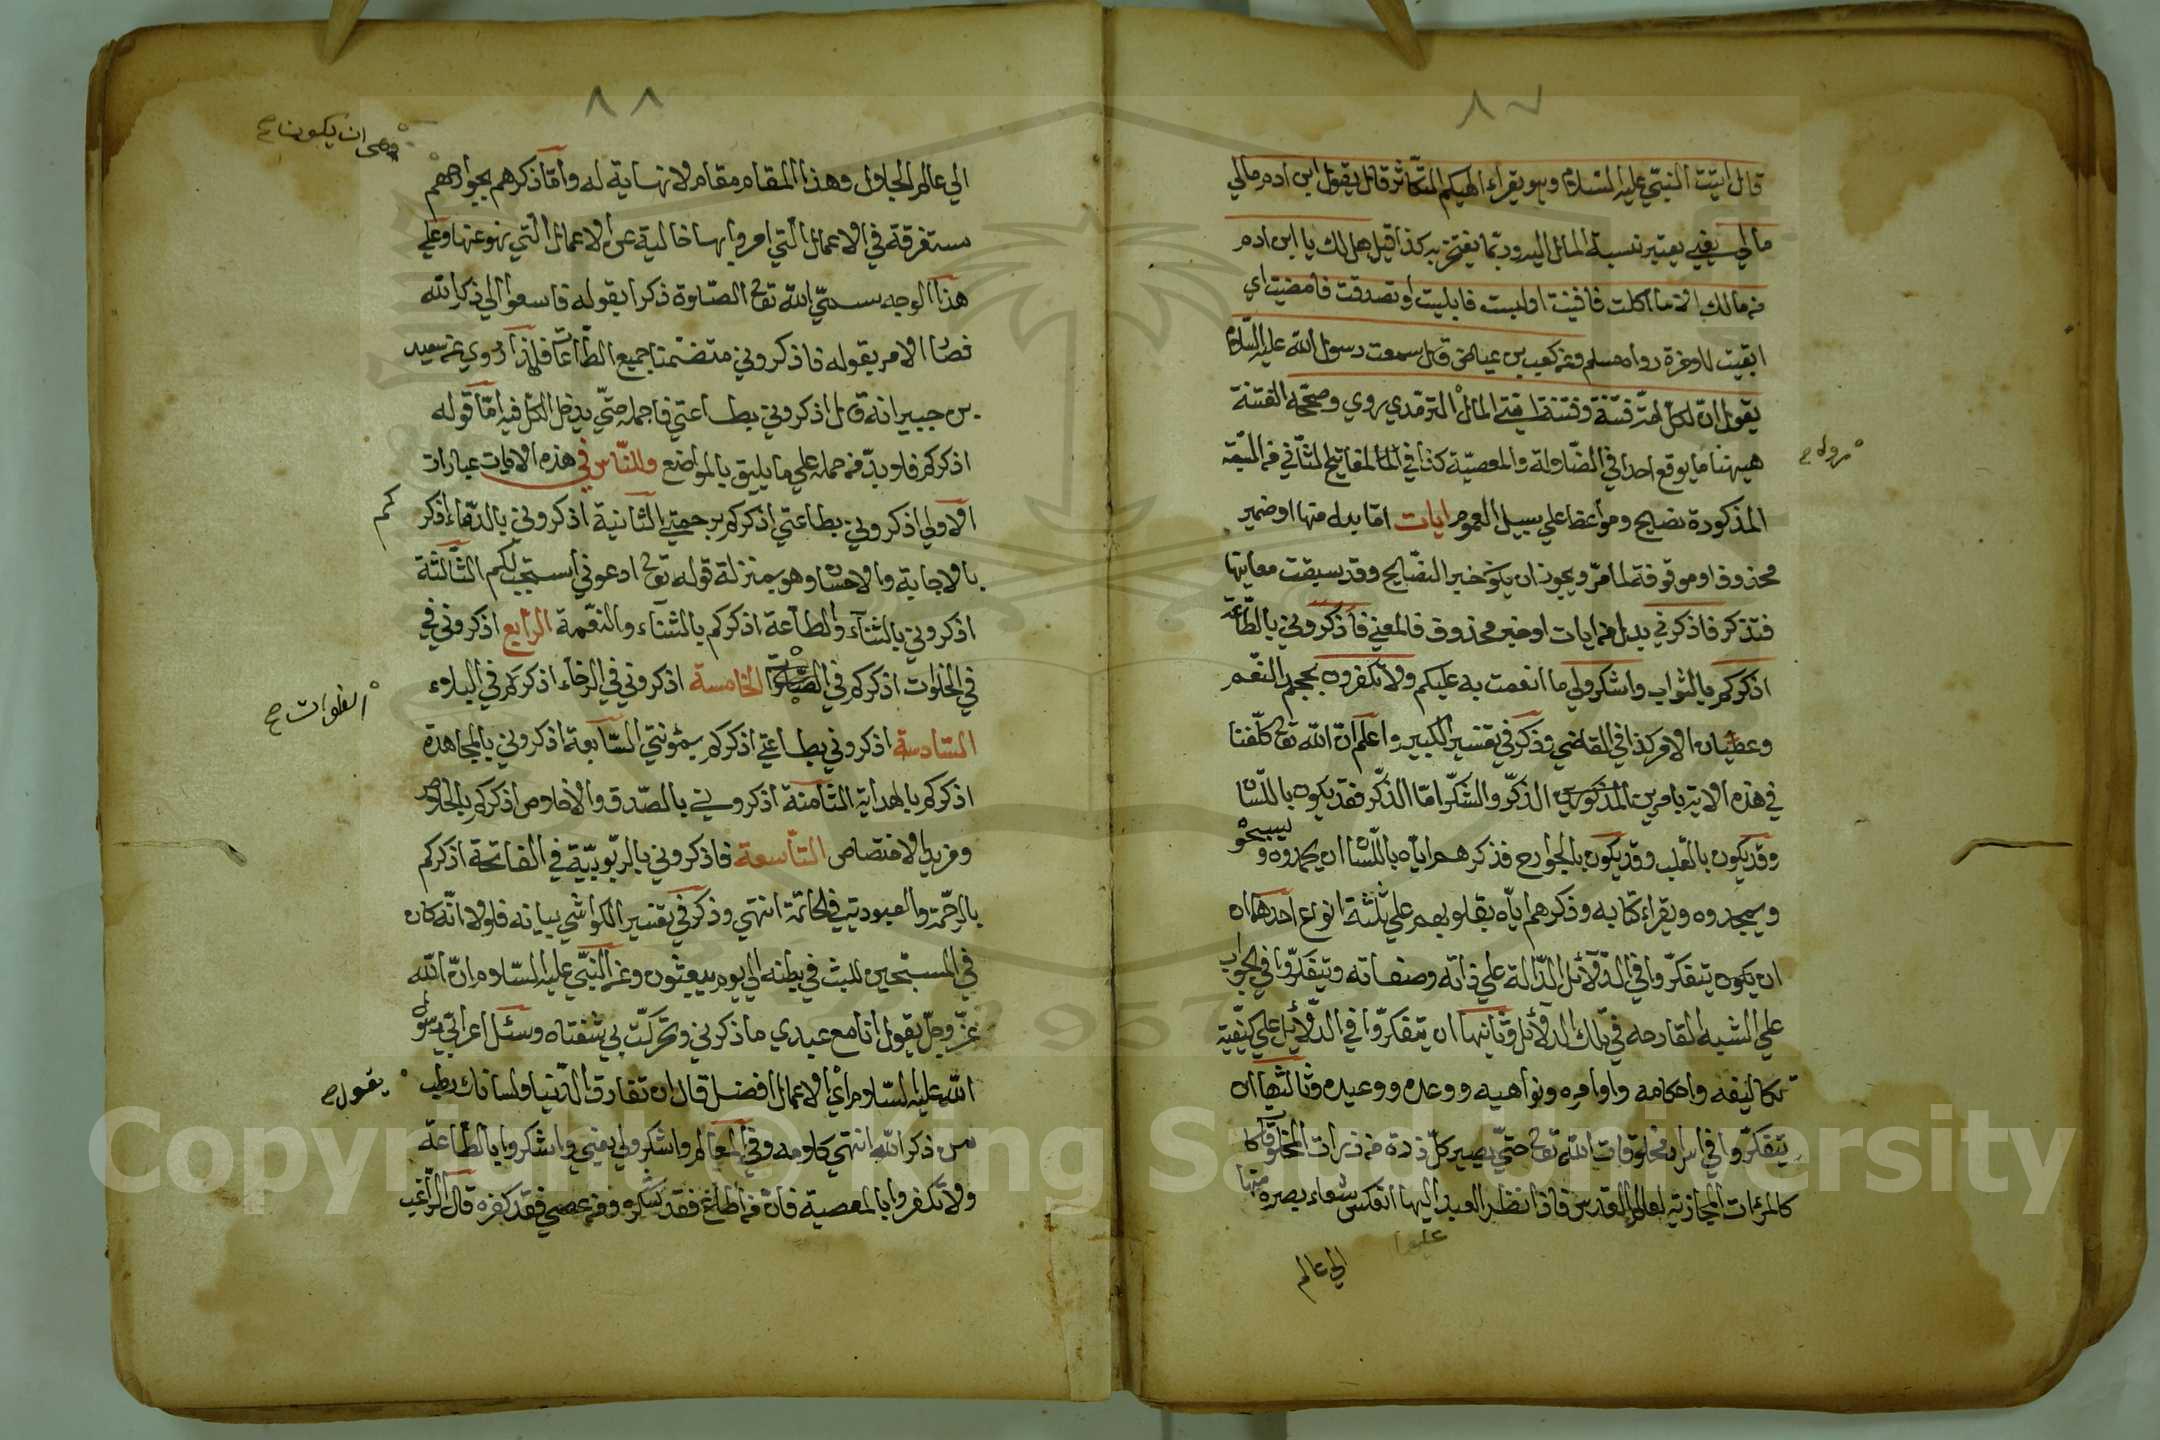 ٨٧
قال اتيت النبي عليه السلام وهو يقراء الهيكم التكاثر قال يقول ابن ادم مالي
مالي يعني يعتبر نسبة المال اليه وربما يفتخر به كذا قيل هل لك يا ابن ادم
من مالك الا ما اكلت فافنيت او لبست فابليت او تصدقت فامضيت اي
ابقيت للاخرة رواه مسلم وعن كعب بن عياض قال سمعت رسول الله عليه السلام
يقول ان لكل امة فتنة وفتنة امتي المال الترمذي روي وصححه الفتنة
ههنا ما يوقع احدا في الضلالة والمعصية كذا في المفاتيح لمثاني من
المذكورة نصايح ومواعظ علي سبيل العموم ايات اما بدل منها او ضمير
محذوف او موقوفة لما مر ويجوز ان يكون خبر النصايح وقد سبقت معانيها
فتذكر فاذكروني بدل من ايات او خبر محذوف فالمعني فاذكروني بالطاعة
اذكركم بالثواب واشكروا لي ما انعمت به عليكم ولا تكفرون بجحد النعم
وعصيان الامر كذا في القاضي وذكر في تفسير الكبير واعلم ان الله تع كلفنا
في هذه الاية بامرين المذكورين الذكر والشكر اما الذكر فقد يكون باللسان
وقد يكون بالقلب وقد يكون بالجوارح فذكرهم اياه باللسان ان يحمدوه و يسبحو
ويمجدوه ويقراء كتابه وذكرهم اياه بقلوبهم علي ثلثة انواع احدها ان
ان يكون يتفكروا في الدلائل الدالة علي ذاته وصفاته ويتفكروا في الجواب
علي الشبه القادحه في تلك الدلائل وثانيها ان يتفكروا في الدلائل علي كيفية
تكاليفه واحكامه واوامره ونواهيه ووعده ووعيده وثالثها ان
يتفكروا في اسرار مخلوقات الله تع حتي يصير كل ذرة من ذرات المخلوقات
كالمرأت المحاذية لعالم القدس فاذا نظر العبد اليها انعكس شعاع بصره منها
الي عالم
٨٨
وهي ان يكون صح
الي عالم الجلال وهذا المقام مقام لا نهاية له واما ذكرهم بجوارحهم
مستغرقة في الاعمال التي امروا بها خالية عن الاعمال التي نهوا عنها وعلي
هذا الوجه سمي الله تع الصلوة ذكرا بقوله فاسعوا الي ذكر الله
فصار الامر بقوله فاذكروني متضمنا جميع الطاعات فلهذا روي عن سعيد
بن جبير انه قال اذكروني بطاعتي فاجمله حتي يدخل الكل فيه اما قوله
اذكركم فلا بد من حمله علي ما يليق بالمواضع وللناس في هذه الايات عبارات
الاولي اذكروني بطاعتي اذكركم برحمتي الثانية اذكروني بالدعاء اذكر كم
بالاجابة والاحسان وهو بمنزلة قوله تع ادعوني استجب لكم الثالثة
اذكروني بالثناء والطاعة اذكركم بالثناء والنعمة الرابع اذكروني في
في الخلوات اذكركم في الخامسة اذكروني في الرخاء اذكركم في البلاء
الفلوات صح
السادسة اذكروني بطاعتي اذكركم بمعونتي السابعة اذكروني بالمجاهدة
اذكركم بالهداية الثامنة اذكروني بالصدق والاخلاص اذكركم بالخلاص
ومزيد الاختصاص التاسعة فاذكروني بالربوبية في الفاتحة اذكركم
بالرحمة والعبودية في الخاتمة انتهي وذكر في تفسير الكواشي بيانه فلولا انه كان
في المسبحين للبث في بطنه الي يوم يبعثون وعن النبي عليه السلام ان الله
عز وجل يقول انا مع عبدي ما ذكرني وتحركت بي شفتاه وسئل اعرابي رسول
الله عليه السلام اي الاعمال افضل قال ان تفارق الدنيا ولسانك رطب
يقول صح
من ذكر الله انتهي كلامه وفي المعالم واشكروا لي يعني واشكروا بالطاعة
ولا تكفروا بالمعصية فان من اطاع فقد شكره ومن عصي فقد كفره قال الراغب
Copyright © King Saud University
1957